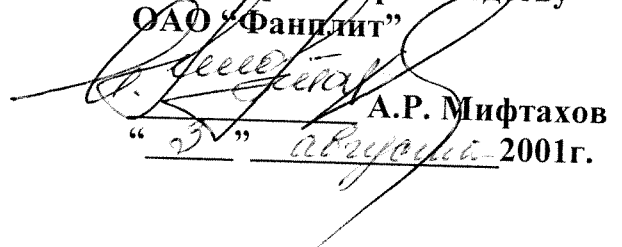 ОАО “Фанплит”
А.Р. Мифтахов
“ 3 ” августа 2001г.